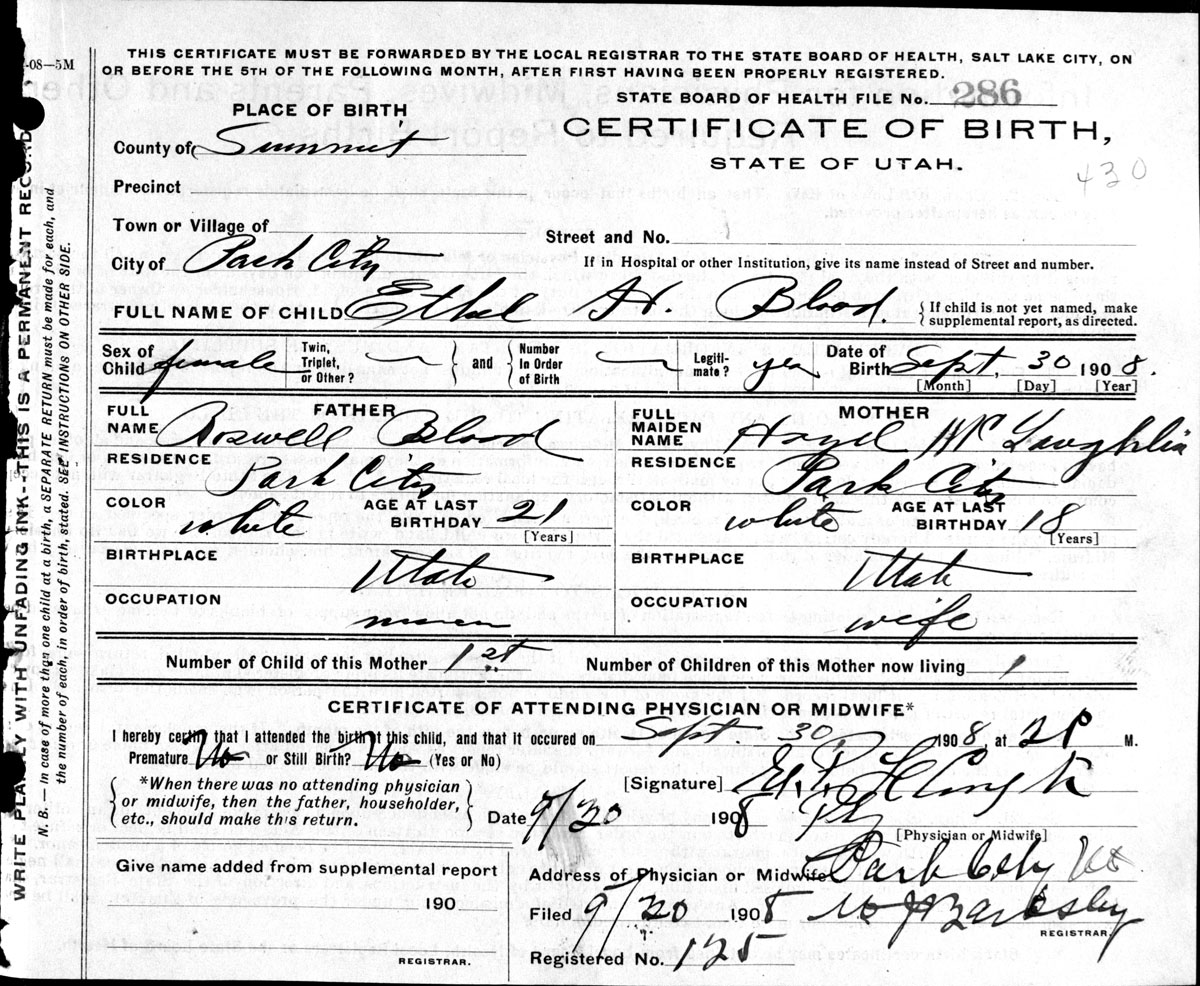 -08—5M
THIS CERTIFICATE MUST BE FORWARDED BY THE LOCAL REGISTRAR TO THE STATE BOARD OF HEALTH, SALT LAKE CITY, ON
OR BEFORE THE 5TH OF THE FOLLOWING MONTH, AFTER FIRST HAVING BEEN PROPERLY REGISTERED.
STATE BOARD OF HEALTH FILE No. 286
PLACE OF BIRTH
CERTIFICATE OF BIRTH,
County of Summit
STATE OF UTAH.
430
Precinct
Town or Village of
Street and No.
City of Park City
If in Hospital or other Institution, give its name instead of Street and number.
FULL NAME OF CHILD Ethel H. Blood.
{ If child is not yet named, make
supplemental report, as directed.
Sex of Child female
Twin, Triplet, or Other? —
} and {
Number In Order of Birth —
Legiti-mate? yes
Date of Birth Sept. 30 1908.
[Month] [Day] [Year]
FATHER
FULL NAME Roswell Blood
RESIDENCE Park City
COLOR white AGE AT LAST BIRTHDAY 21
[Years]
BIRTHPLACE Utah
OCCUPATION
MOTHER
FULL MAIDEN NAME Hazel McLaughlin
RESIDENCE Park City
COLOR white AGE AT LAST BIRTHDAY 18
[Years]
BIRTHPLACE Utah
OCCUPATION wife
Number of Child of this Mother 1st Number of Children of this Mother now living 1
CERTIFICATE OF ATTENDING PHYSICIAN OR MIDWIFE*
I hereby certify that I attended the birth of this child, and that it occured on Sept 30, 1908, at 2P M.
Premature No or Still Birth? No (Yes or No)
[Signature]
{ *When there was no attending physician
or midwife, then the father, householder,
etc., should make this return. }
Date 9/30 1908 Phy
[Physician or Midwife]
Give name added from supplemental report
Address of Physician or Midwife Park City Ut
190
Filed 9/30 1908
REGISTRAR.
REGISTRAR.
Registered No. 125
WRITE PLAINLY WITH UNFADING INK--THIS IS A PERMANENT RECORD
N. B.—In case of more than one child at a birth, a SEPARATE RETURN must be made for each, and
the number of each, in order of birth, stated. SEE INSTRUCTIONS ON OTHER SIDE.